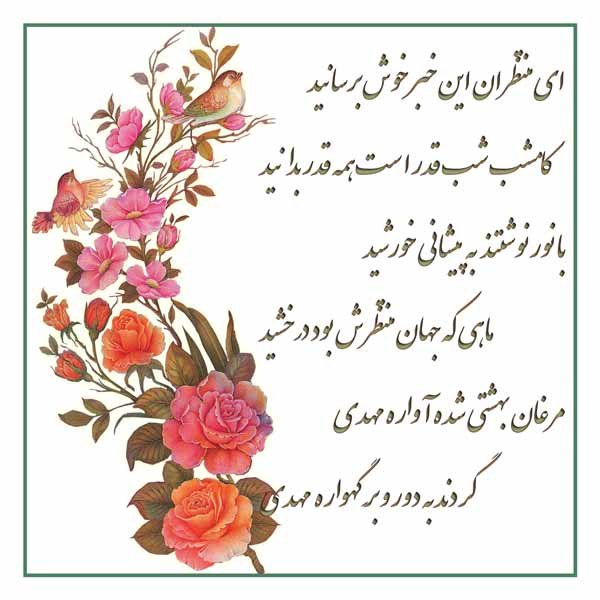 ای منتظران این خبر خوش برسانید
کامشب شب قدر است همه قدر بدانید
با نور نوشتند به پیشانی خورشید
ماهی که جهان منتظرش بود درخشید
مرغان بهشتی شده آواره مهدی
گردند به دور و بر گهواره مهدی